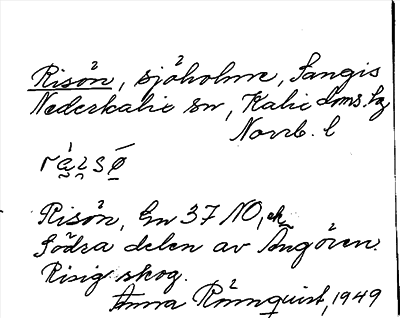 Risön, sjöholme, Sangis
Nederkalix sn, Kalix doms. hg
Norrb. l
Risön, Gn 37 NO, ek
Södra delen av Ängören.
Risig skog.
Anna Rönnquist, 1949